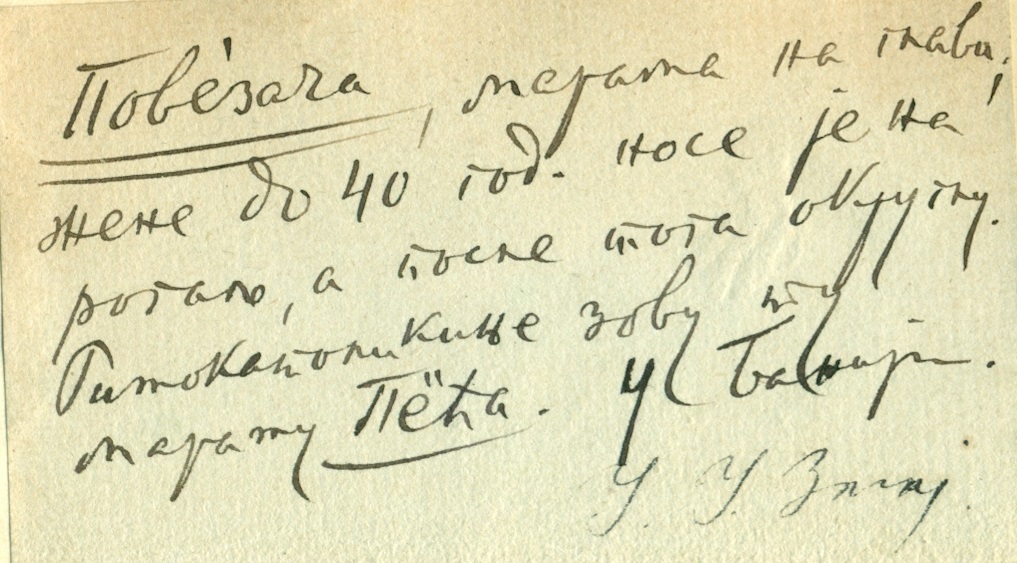 Пове́зача, марама на глави,
жене до 40 год. носе је на
рогаљ, а после тога округлу.
Римокатоликиње зову ту
мараму Пёћа. У Банији.
У. У.